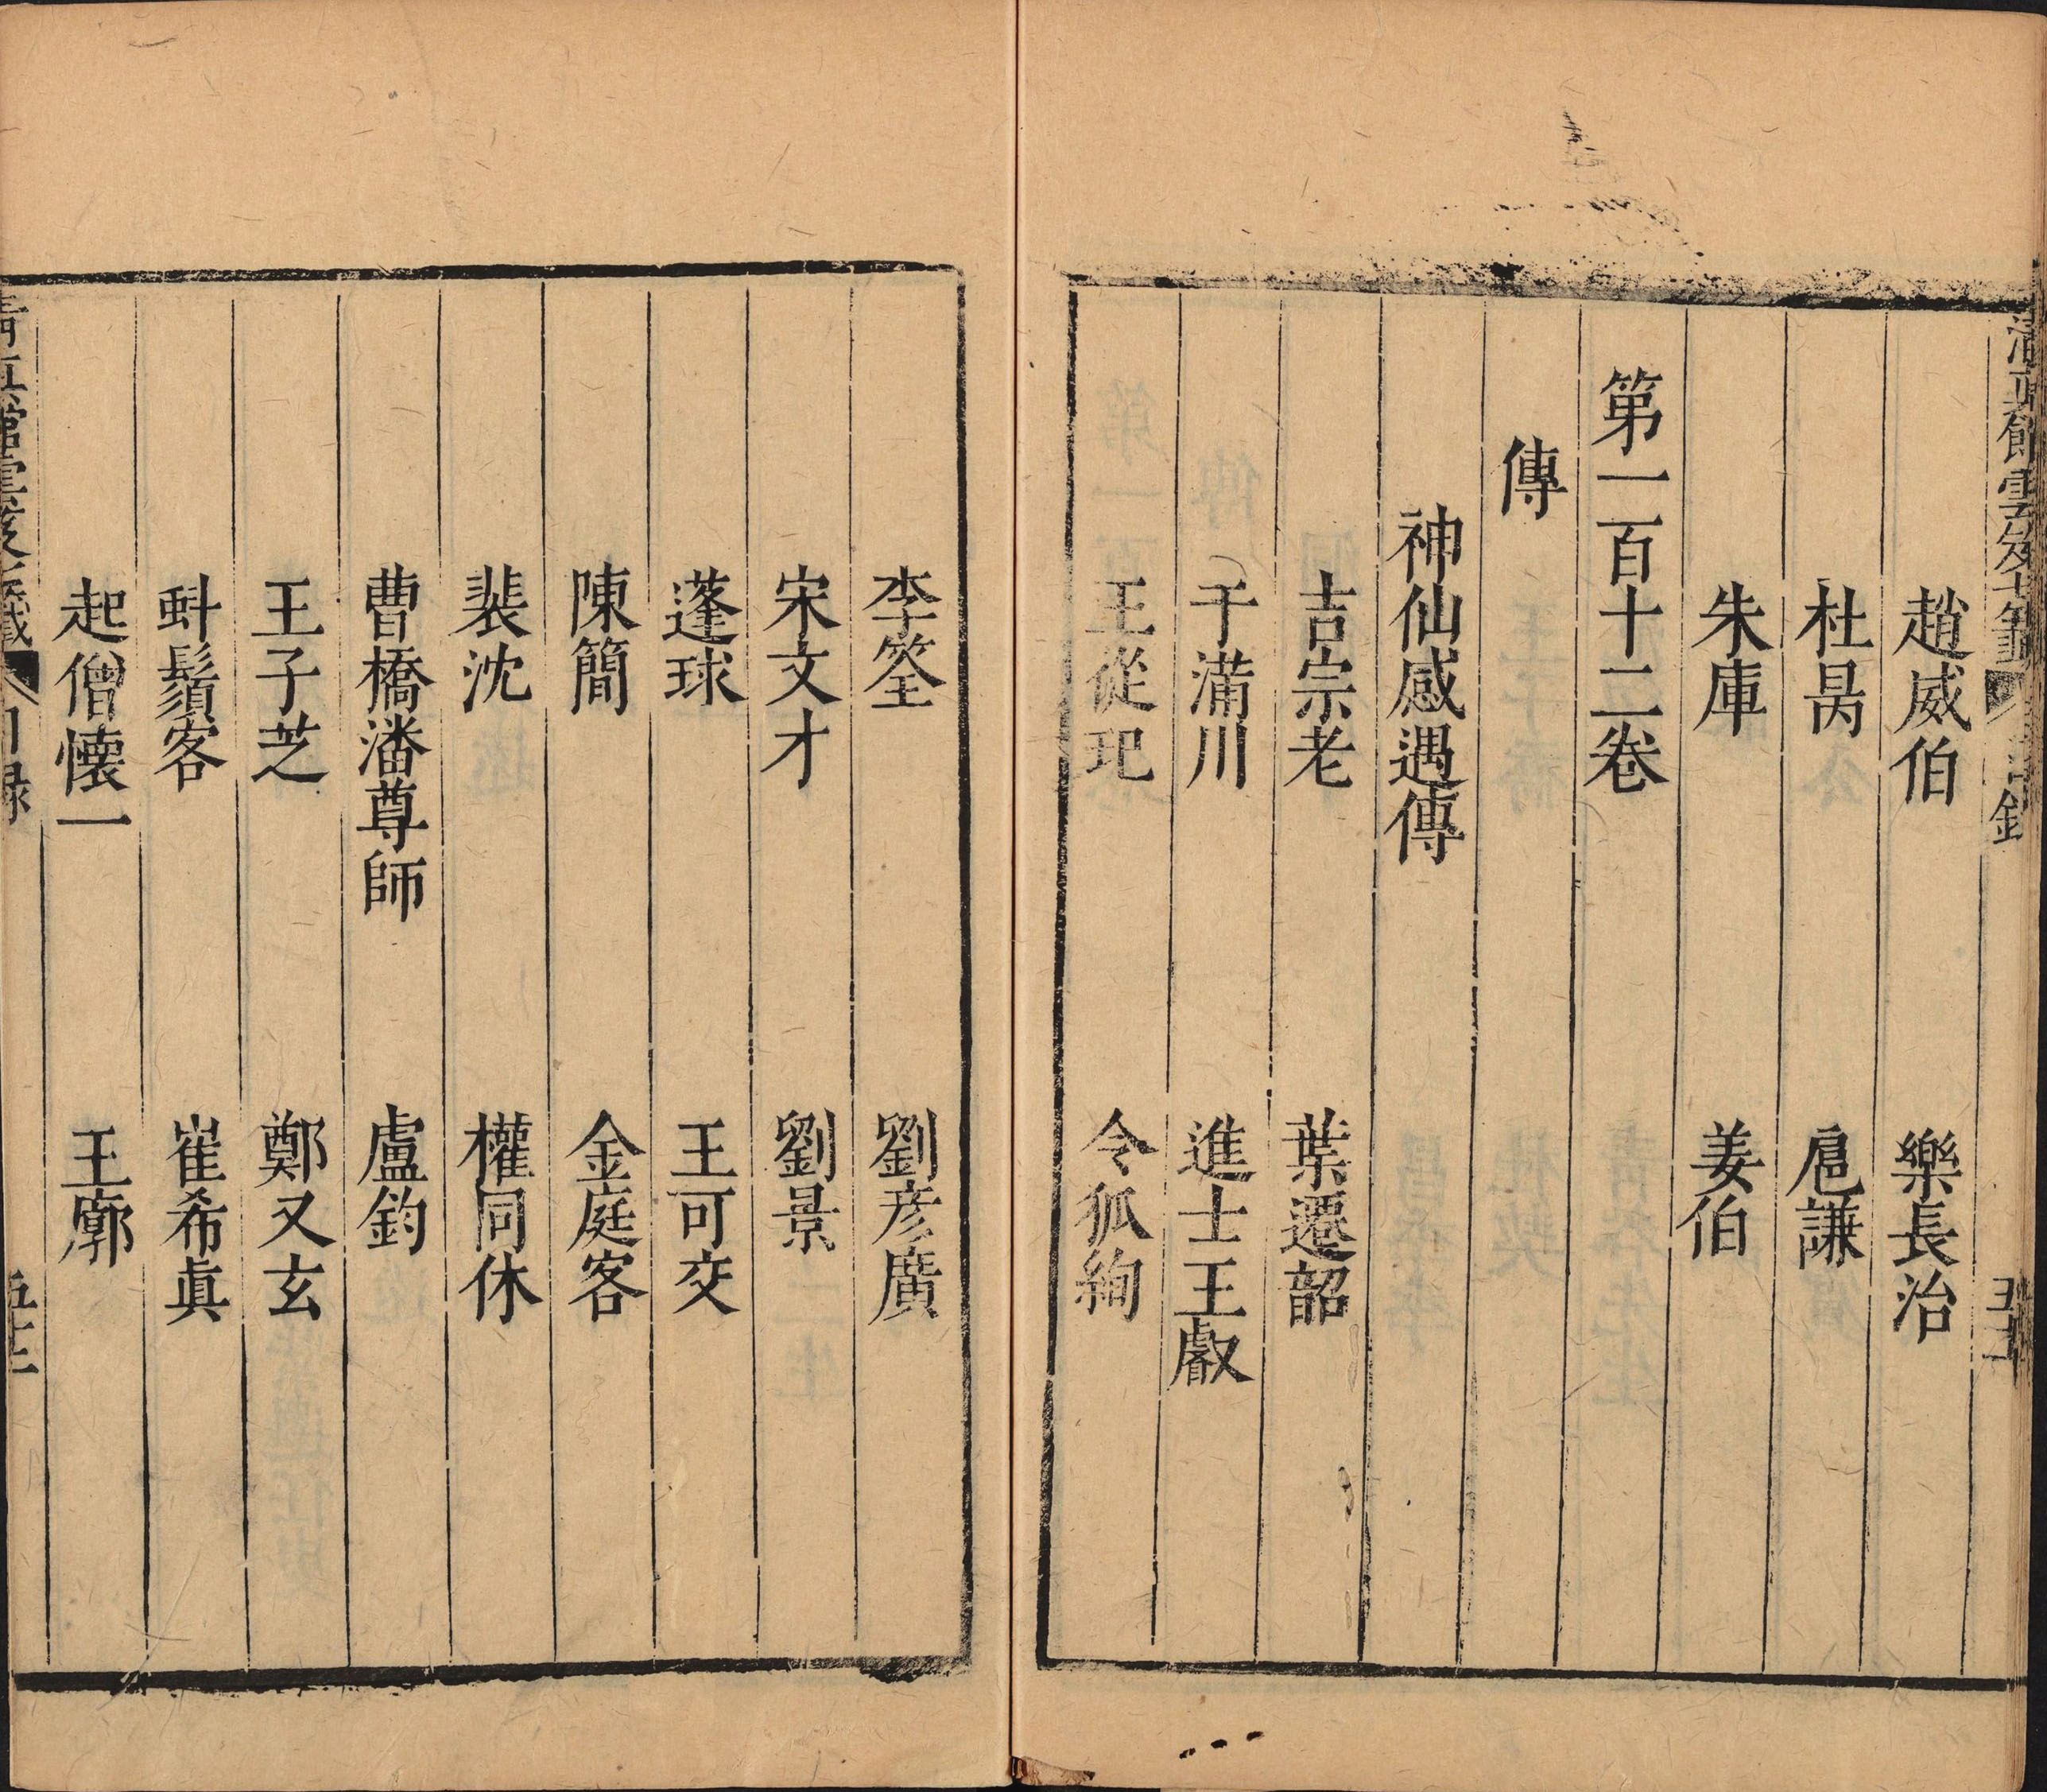 趙威伯 樂長治
杜昺 扈謙
朱庫 姜伯
第一百十二卷
傳
神仙感遇傳
吉宗老 葉遷韶
于滿川 進士王叡
王從玘 令狐絢
李筌 劉彥廣
宋文才 劉景
蓬球 王可交
陳簡 金庭客
裴沈 權同休
曹橋潘尊師 盧鈞
王子芝 鄭又玄
虯鬚客 崔希眞
起僧懐一 王廓